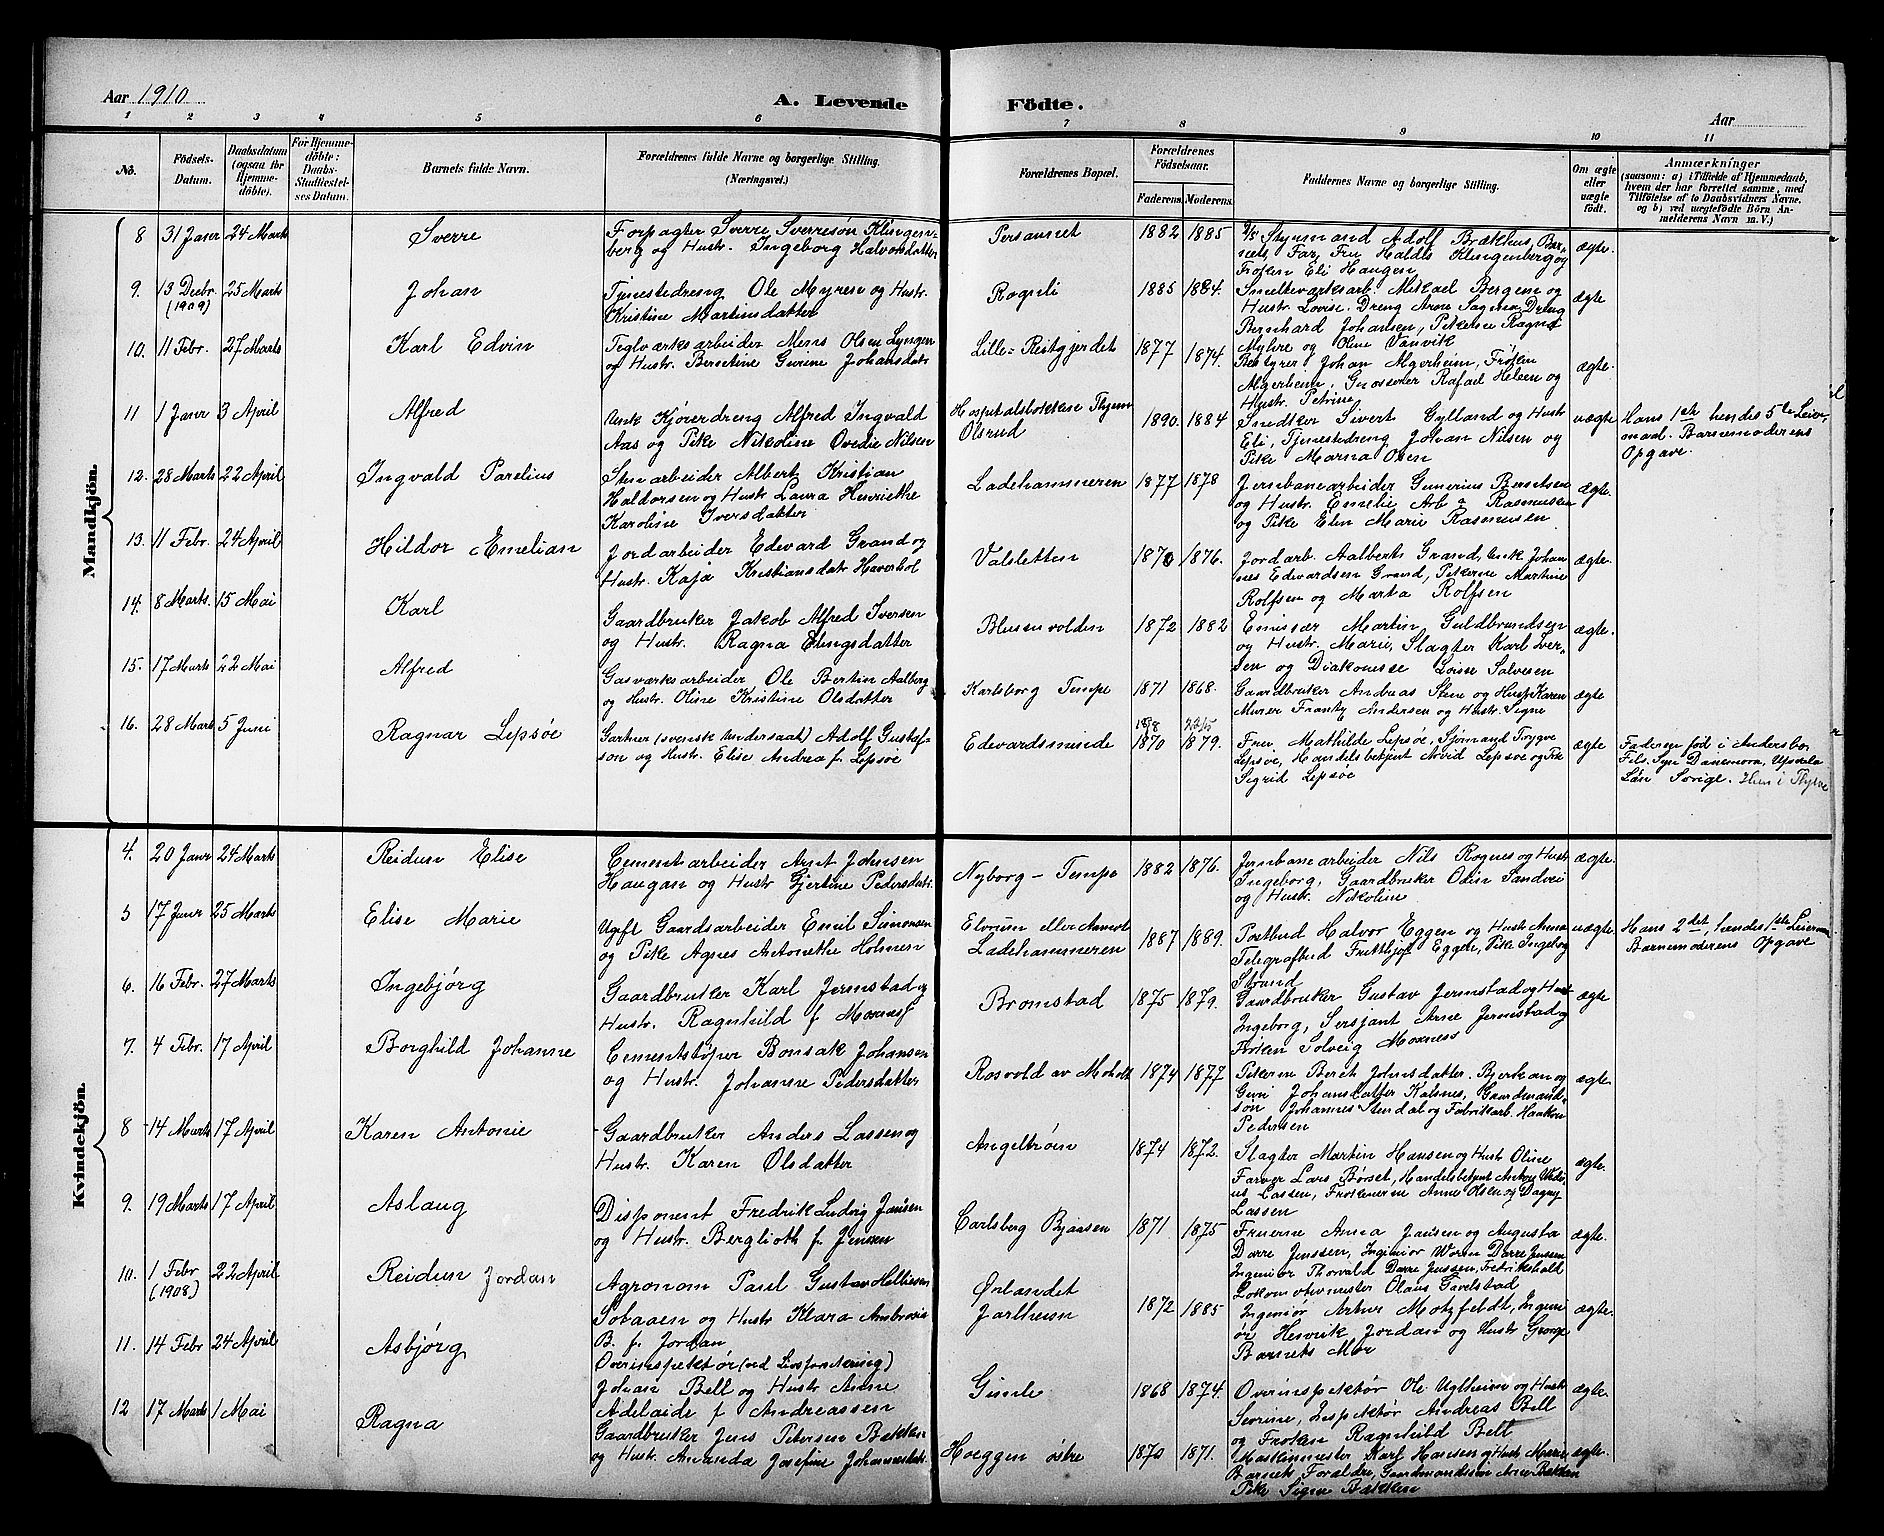 Aar 1910
A. Levende Födte.
Aar
1 2 3 4 5 6 7 8 9 10 11
No.
Födsels-Datum.
Daabsdatum (ogsaa for Hjemmedöbte).
For Hjemmedöbte: Daabs-Stadfæstelses Datum.
Barnets fulde Navn.
Forældrenes fulde Navne og borgerlige Stilling.
(Næringsvei.)
Forældrenes Bopæl.
Forældrenes Födselsaar.
Faderens. Moderens.
Faddernes Navne og borgerlige Stilling.
Om ægte eller uægte födt.
Anmærkninger
(saasom: a) i Tilfælde af Hjemmedaab, hvem der har forrettet samme, med Tilföielse af to Daabsvidners Navne, og b) ved uægtefödte Börn Anmelderens Navn m. V.)
Mandkjön.
8 31 Janr 24 Marts Sverre
Forpagter Sverre Sverresøn Klingenberg og Hustr. Ingeborg Halvorsdatter
Persaunet 1882 1885
Styrmand Adolf Brækhus, Barnets Far, Fru Haldis Klingenberg og Frøken Eli Haugen
ægte.
9. 13 Decbr (1909) 25 Marts Johan
Tjenestedreng Ole Myren og Hustr. Kristine Martinsdatter
Rognli 1885 1884.
Smelteværksarb. Mikael Bergem og Hustr. Lovise. Dreng Arne Dreng Bernhard Johansen, Pikerne Ragna Myhre og Oline Vanvik
ægte
10. 11 Febr. 27 Marts Karl Edvin
Teglværksarbeider Mens Olsen Lyngen og Hustr. Berntine Gurine Johansdatr
Lille-Reitgjerdet 1877 1874.
Bestyrer Johan Algerheim, Frøken Algerheim, Grosserer Rafael Helsen og Hustr. Petrine
ægte.
11 1 Janr 3 April Alfred
Unk Kjørerdreng Alfred Ingvald Aas og Pike Nikoline Ovedie Nilsen
Olsrud 1890. 1884
Snedker Sivert Gylland og Hustr Eli, Tjenestedreng Johan Nilsen og Pike Marna Olsen
uægte
Hans 1ste hendes 5te Leiermaal. Barnemoderens Opgave.
12. 28 Marts 22 April Ingvald Parelius
Stenarbeider Albert Kristian Haldorsen og Hustr Laura Henriethe Karoline Iversdatter
Ladehammeren 1877 1878
Jernbanearbeider Gunerius Berntsen og Hustr. Emelie Arb Rasmusen og Pike Elen Marie Rasmusen
ægte.
13. 11 Febr. 24 April Hildor Emelian
Jordarbeider Edevard Grand og Hustr. Kaja Kristiansdatr Haverhol
Valsletten 1870 1876.
Jordarb. Aalbert Grand, Unk. Johannes Edvardsen Grand, Pikerne Martine Rolfsen og Marta Rolfsen
ægte.
14. 8 Marts. 15 Mai Karl
Gaardbruker Jakob Alfred Iversen og Hustr. Ragna Elingsdatter
Blussuvolden 1872 1882
Emissær Martin Guldbrandsen og Hustr. Marie, Slagter Karl Iversen og Diakonesse Loise Salvesen
ægte.
15. 17 Marts 22 Mai Alfred
Gasværksarbeider Ole Bertin Aalberg og Hustr. Oline Kristine Olsdatter
Karlsborg Tempe 1871 1868.
Gaardbruker Andreas Stene og Hust Karen Murer Frantz Andersen og Hustr. Signe
ægte
16. 28 Marts 5 Juni Ragnar Lepsøe
Gartner (svensk Undersaat) Adolf Gustafson og Hustr. Elise Andrea f. Lepsøe
Edevardsminde 1870 1879.
Fru Mathilde Lepsøe, Sjømand Trygve Lepsøe, Handelsbetjent Arvid Lepsøe og Frk Sigrid Lepsøe
ægte
Faderen fød i Andersbo, Fils. Syn Danemora, Upsala Län Sverige.
Kvindekjön.
4. 20 Janr 24 Marts Reidun Elise
Cementarbeider Arnt Johnsen Haugan og Hustr Gjertine Pedersdatr.
Nyborg - Tempe 1882 1876.
Jernbanearbeider Nils Rognes og Hustr Ingeborg, Gaardbruker Odin Sandvei og Hustr. Nikoline
ægte.
5 17 Janr 25 Marts Elise Marie
Ugift Gaardsarbeider Emil Simonsen og Pike Agnes Antonethe Holmen
Ladehammeren 1887 1889.
Postbud Halvor Eggen og Hustr. Anna Telegrafbud Frithjof Eggen, Pike Ingeborg Strand
uægte
Hans 2det, hendes 1ste Leierm Barnemoderens Opgave
6. 16 Febr. 27 Marts Ingebjørg
Gaardbruker Karl Jermstad og Hustr. Ragnhild f Moxness
Bromstad 1875 1879.
Gaardbruker Gustav Jermstad og Hust Ingeborg, Sersjant Arne Jermstad og Frøken Solveig Moxness
ægte
7. 4 Febr. 17 April Borghild Johanne
Cementstøper Bonsak Johansen og Hustr. Johanne Pedersdatter
Rosvold av Moholt 1874 1877
Pikerne Beret Johnsdatter Bjerkan og Guri Johansdatter Kalsnes, Gaardmandssøn Johannes Stendal og Fabrikarb. Haakon Pedersen
ægte.
8 14 Marts 17 April Karen Antonie
Gaardbruker Anders Lassen og Hustr. Karen Olsdatter
Angeltrøen 1874 1872.
Slagter Martin Hansen og Hustr Oline Farver Lars Børset, Handelsbetjent Anton Lassen, Frøknerne Anne Olsen og Dagny Lassen
ægte.
9. 19 Marts 17 April Aslaug
Disponent Fredrik Ludvig Jansen og Hustr. Berglioth f. Jenssen
Carlsberg Byaasen 1871 1875
Fruerne Anna Jansen og Augusta Darre Jenssen, Ingeniør Worm Darre Jenssen Ingeniør Thorvald Darre Jenssen, Fredrikshald Lokomotivmester Olaus Gavelstad
ægte.
10. 1 Febr (1908) 22 April Reidun Jordan
Agronom Paul Gustav Helliesen Sotaaen og Hustr Klara Ambrosia B. f. Jordan
Ørlandet Jarlheim 1872 1885
Ingeniør Artur Motzfeldt, Ingeniør Henrik Jordan og Hustr George Barnets Mor
ægte.
11. 14 Febr 24 April Asbjørg
Overinspektør (ved Livsforsikring) Johan Belt og Hustr Anne Adelaide f Andreassen
Gimle 1868 1874.
Overinspektør Ole Ugtheim og Hustr Sevrine, Inspektør Andreas Belt og Frøken Ragnhild Belt
ægte.
12 17 Marts 1 Mai Ragna
Gaardbruker Jens Petersen Bakken og Hustr. Amanda Josefine Johannesdatr
Hoeggen østre 1870 1871.
Maskinmester Karl Hansen og Hustr Marie Barnets Forældre, Gaardmandssøn Arne Bakken Pike Signe Bakken
ægte.